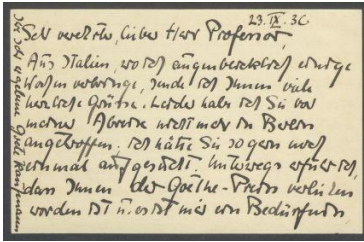 23. IX. 30
Sehr verehrter, lieber Herr Professor,
Aus Italien, wo ich augenblicklich einige
Wochen verbringe, sende ich Ihnen viele
herzliche Grüsse. Leider habe ich Sie vor
meiner Abreise nicht mehr in Berlin
angetroffen; ich hätte Sie so gern noch
einmal aufgesucht. Unterwegs erfuhr ich,
dass Ihnen der Goethe-Preis verliehen
worden ist u. es ist mir ein Bedürfnis,
Ihr sehr ergebene